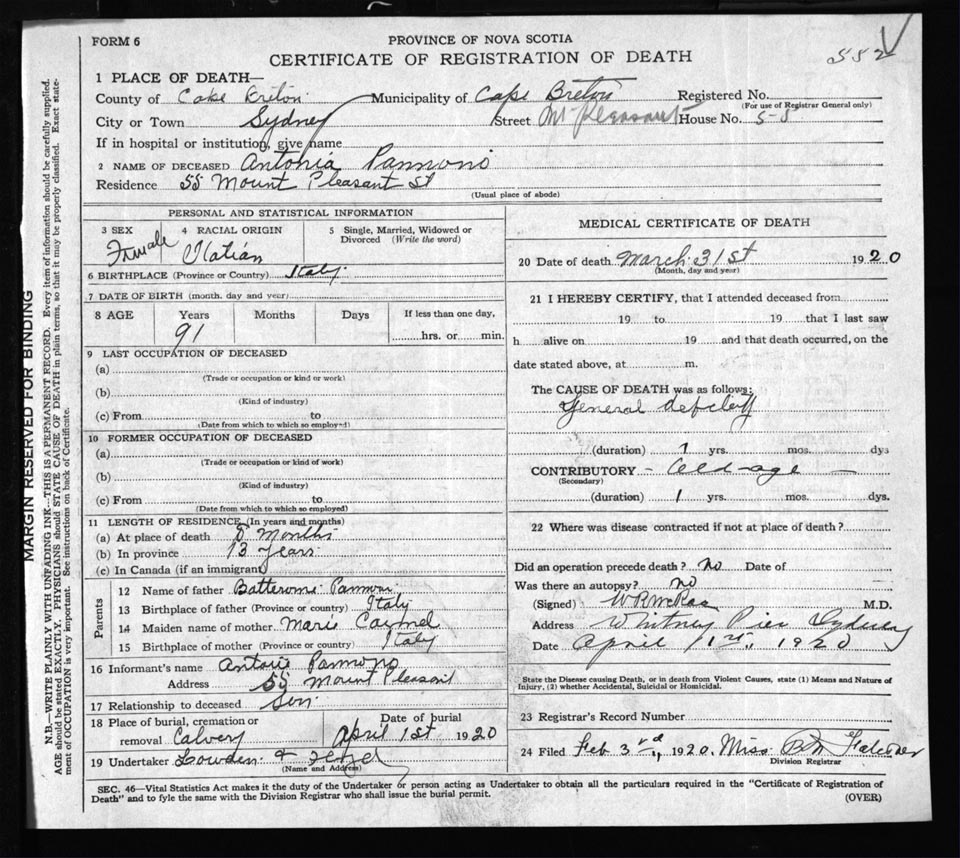 FORM 6
PROVINCE OF NOVA SCOTIA
552
CERTIFICATE OF REGISTRATION OF DEATH
1 PLACE OF DEATH—
County of Cape Briton Municipality of Cape Breton Registered No.
(For use of Registrar General only)
City or Town Sydney Street Mt Pleasant House No. 55
If in hospital or institution, give name
2 NAME OF DECEASED Antonia Pannoni
Residence 55 Mount Pleasant St
(Usual place of abode)
PERSONAL AND STATISTICAL INFORMATION
3 SEX 4 RACIAL ORIGIN 5 Single, Married, Widowed or
Divorced (Write the word)
Female Italian
6 BIRTHPLACE (Province or Country) Italy
7 DATE OF BIRTH (month, day and year)
8 AGE Years Months Days If less than one day,
91 hrs. or min.
9 LAST OCCUPATION OF DECEASED
(a)
(Trade or occupation or kind or work)
(b)
(Kind of industry)
(c) From to
(Date from which to which so employed)
10 FORMER OCCUPATION OF DECEASED
(a)
(Trade or occupation or kind of work)
(b)
(Kind of industry)
(c) From to
(Date from which to which so employed)
11 LENGTH OF RESIDENCE (In years and months)
(a) At place of death 8 Months
(b) In province 13 Years
(c) In Canada (if an immigrant)
Parents
12 Name of father Pannoni
13 Birthplace of father (Province or country) Italy
14 Maiden name of mother Marie Carmel
15 Birthplace of mother (Province or country) Italy
16 Informant's name Antonio Pannono
Address 55 Mount Pleasant
17 Relationship to deceased Son
18 Place of burial, cremation or Date of burial
removal Calvery April 1st 1920
19 Undertaker Lowden &
(Name and Address)
MEDICAL CERTIFICATE OF DEATH
20 Date of death March 31st 1920
(Month, day and year)
21 I HEREBY CERTIFY, that I attended deceased from
19 to 19 that I last saw
h alive on 19 and that death occurred, on the
date stated above, at m.
The CAUSE OF DEATH was as follows:
General
(duration) 1 yrs. mos. dys
CONTRIBUTORY - Old-age -
(Secondary)
(duration) 1 yrs. mos. dys.
22 Where was disease contracted if not at place of death?
Did an operation precede death? no Date of
Was there an autopsy? no
(Signed) W R McRae M.D.
Address Whitney Pier Sydney
Date April 1st, 1920
State the Disease causing Death, or in death from Violent Causes, state (1) Means and Nature of
Injury, (2) whether Accidental, Suicidal or Homicidal.
23 Registrar's Record Number
24 Filed Feb 3rd, 1920. Miss
Division Registrar
SEC. 46—Vital Statistics Act makes it the duty of the Undertaker or person acting as Undertaker to obtain all the particulars required in the "Certificate of Registration of
Death" and to fyle the same with the Division Registrar who shall issue the burial permit.
(OVER)
MARGIN RESERVED FOR BINDING
N.B.—WRITE PLAINLY WITH UNFADING INK—THIS IS A PERMANENT RECORD. Every item of information should be carefully supplied.
AGE should be stated EXACTLY. PHYSICIANS should STATE CAUSE OF DEATH in plain terms, so that it may be properly classified. Exact state-
ment of OCCUPATION is very important. See instructions on back of Certificate.